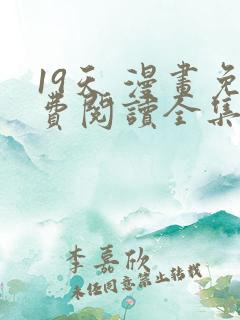 19天 漫畫免
費閱讀全集
李嘉欣
未经同意禁止转载